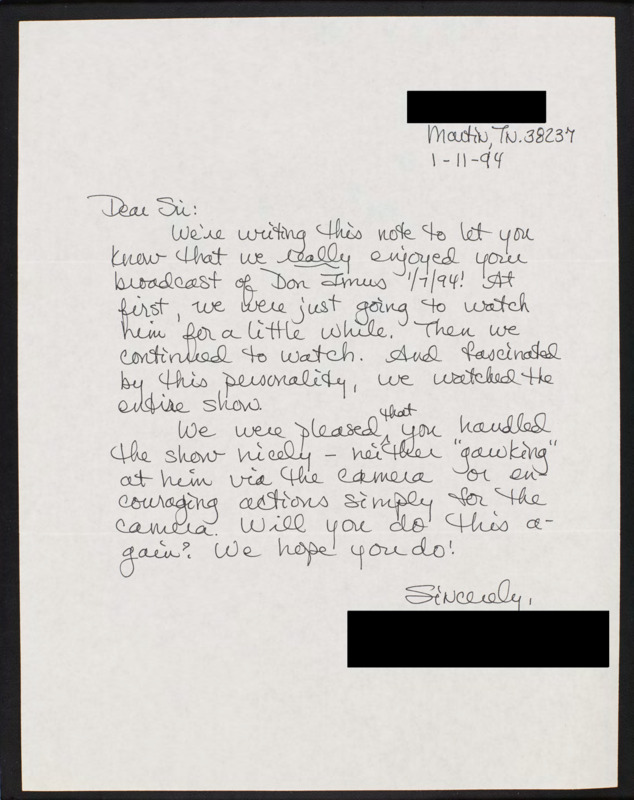 Martin, TN. 38237
1-11-94
Dear Sir:
We're writing this note to let you
know that we really enjoyed your
broadcast of Don Imus 1/7/94! At
first, we were just going to watch
him for a little while. Then we
continued to watch. And fascinated
by this personality, we watched the
entire show.
We were pleased that you handled
the show nicely - neither "gawking"
at him via the camera or en-
couraging actions simply for the
camera. Will you do this a-
gain? We hope you do!
Sincerely,